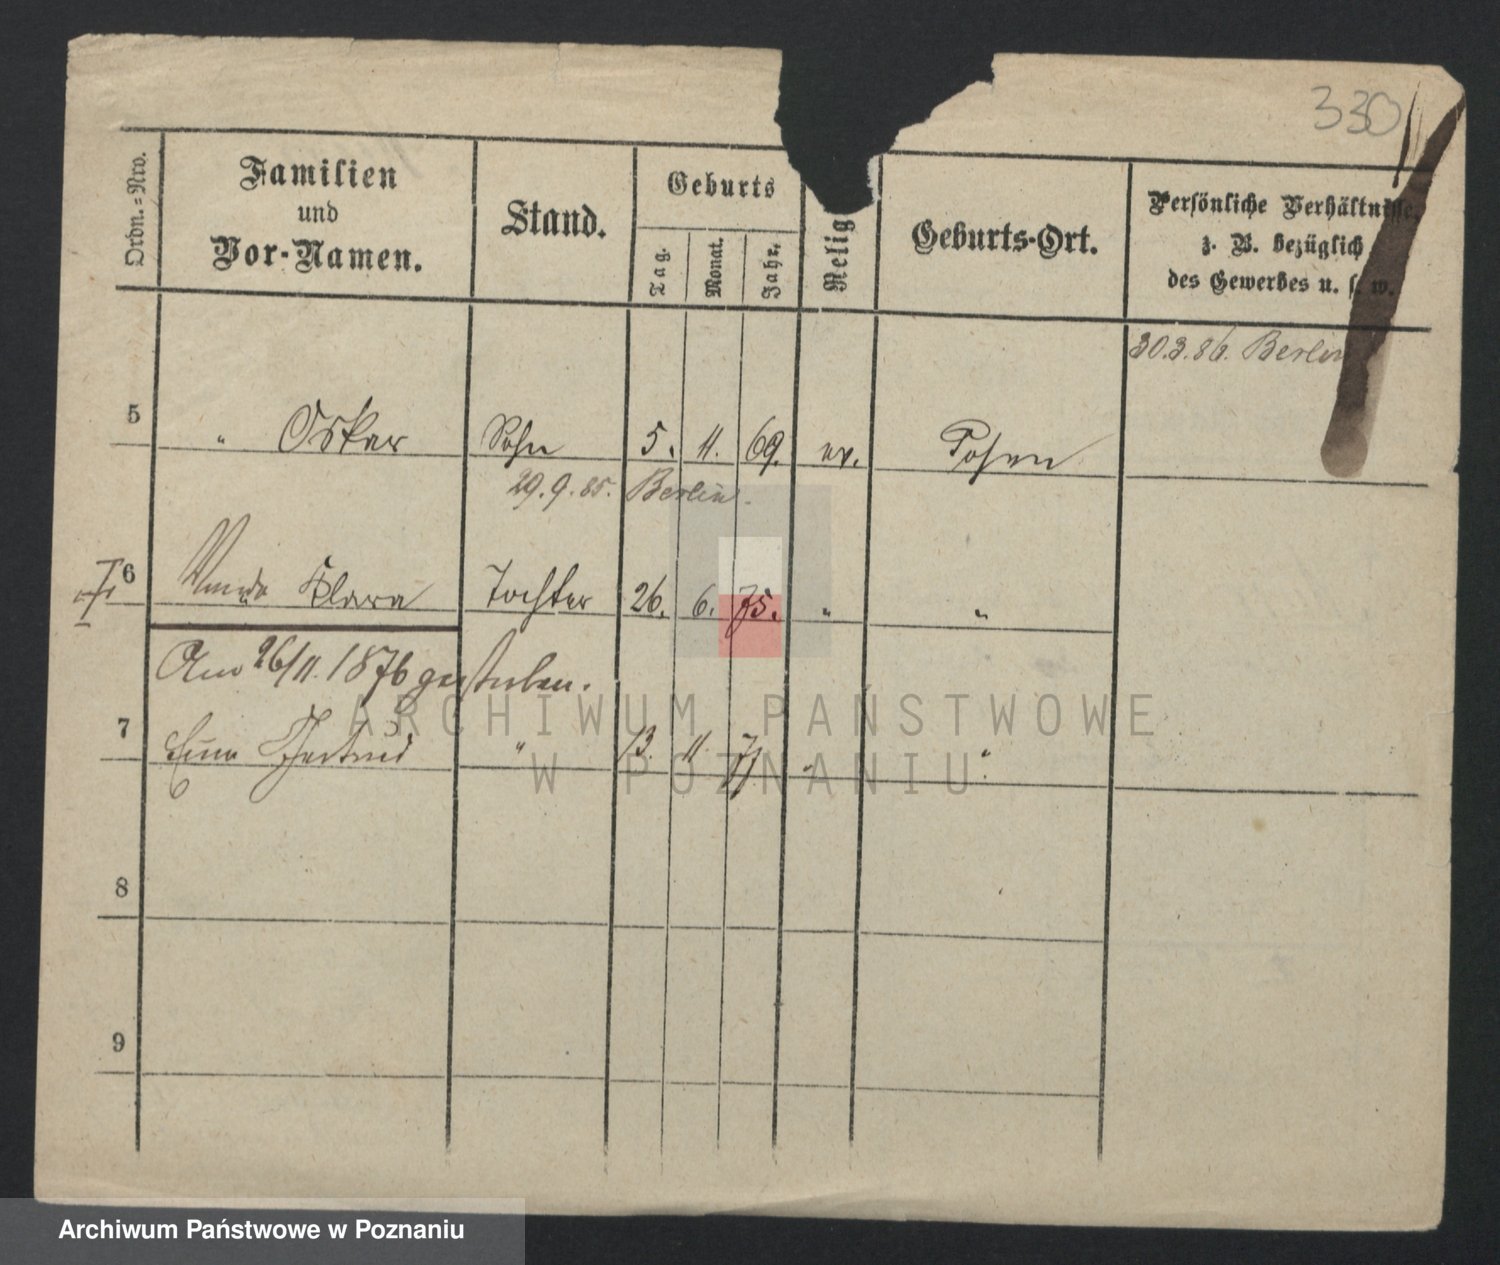 330
Ordn.=Nro.
Familien
und
Vor-Namen.
Stand.
Geburts
Tag.
Monat.
Jahr.
Relig
Geburts-Ort.
Persönliche Verhältnisse,
z. B. bezüglich
des Gewerbes u. s. w.
30.3.86. Berlin
5 " Oskar Sohn 5. 11. 69. ev. Posen
29.9.85. Berlin.
6 Klara Tochter 26. 6. 75. " "
Am 26/11. 1876 gestorben.
7 Gertrud " 13. 11. 77 " "
8
9
ARCHIWUM PAŃSTWOWE
W POZNANIU
Archiwum Państwowe w Poznaniu